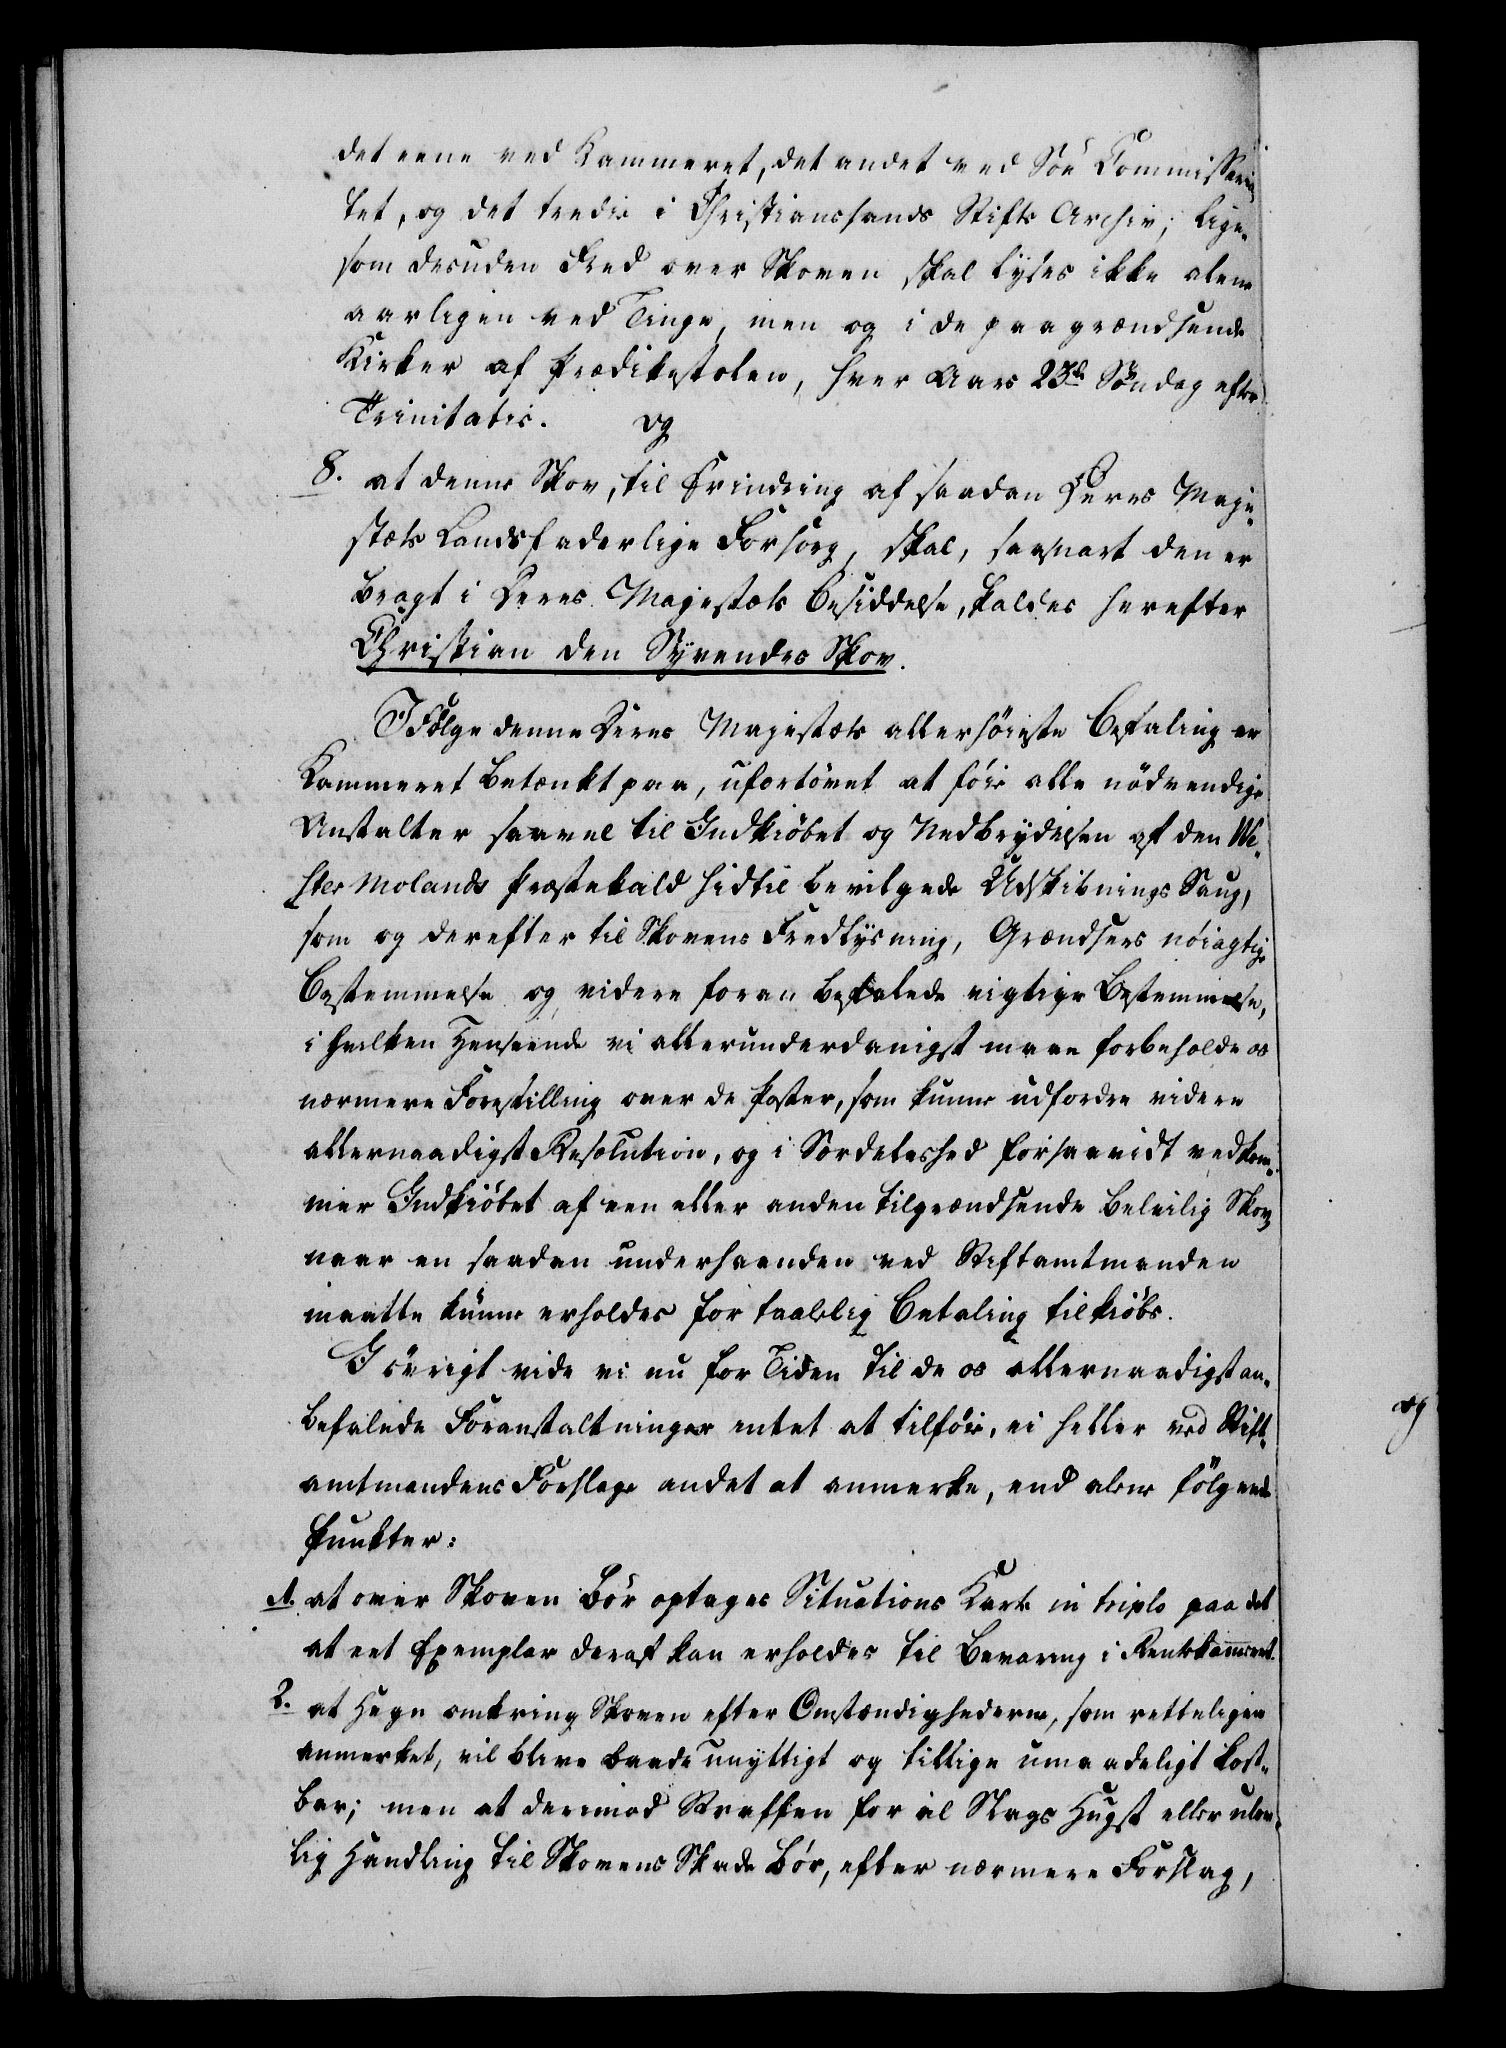 det eene ved Kammeret, det andet ved Söe Commissaria-
tet, og det tredie i Christianssands Stifts Archiv; lige-
som desuden Fred over Skoven skal lyses ikke alene
aarligen ved Tinge, men og i de paagrændsende
Kirker af Prædikestolen, hver Aars 23de Söndag efter
Trinitatis. og
8. at denne Skov, til Erindring af saadan Deres Maje-
stæts Landsfaderlige Forsorg, skal, saasnart den er
bragt i Deres Majestæts Besiddelse, kaldes herefter
Christian den Syvendes Skov.
Ifölge denne Deres Majestæts allerhöieste Befaling er
Kammeret betænkt paa, ufortövet at föie alle nödvendige
Anstalter saavel til Indkiöbet og Nedbrydelsen af den We-
ster Molands Præstekald hidtil bevilgede Udskibnings Saug,
som og derefter til Skovens Fredlysning, Grændsers nöiagtige
Bestemmelse og videre foran befalede vigtige Bestemmelse,
i hvilken Henseende vi allerunderdanigst maae forbeholde os
nærmere Forestilling over de Poster, som kunne udfordre videre
allernaadigst Resolution, og i Særdeleshed forsaavidt vedkom-
mer Indkiöbet af een eller anden tilgrændsende beleilig Skov,
naar en saadan underhaanden ved Stiftamtmanden
maatte kunne erholdes for taalelig Betaling tilkiöbs.
I övrigt vide vi nu for Tiden til de os allernaadigst an-
befalede Foranstaltninger intet at tilföie, ei heller ved Stift-
amtmandens Forslage andet at anmerke, end alene fölgende
Punkter:
1. at over Skoven bör optages Situations Kart in triplo paa det
at eet Exemplar deraf kan erholdes til Bevaring i Rentekammeret.
2. at Hegn omkring Skoven efter Omstændighederne, som retteligen
anmerket, vil blive baade unyttigt og tillige umaadeligt kost-
bar; men at derimod Straffen for al Slags Hugst eller ulov-
lig Handling til Skovens Skade bör, efter nærmere Forslag,
og